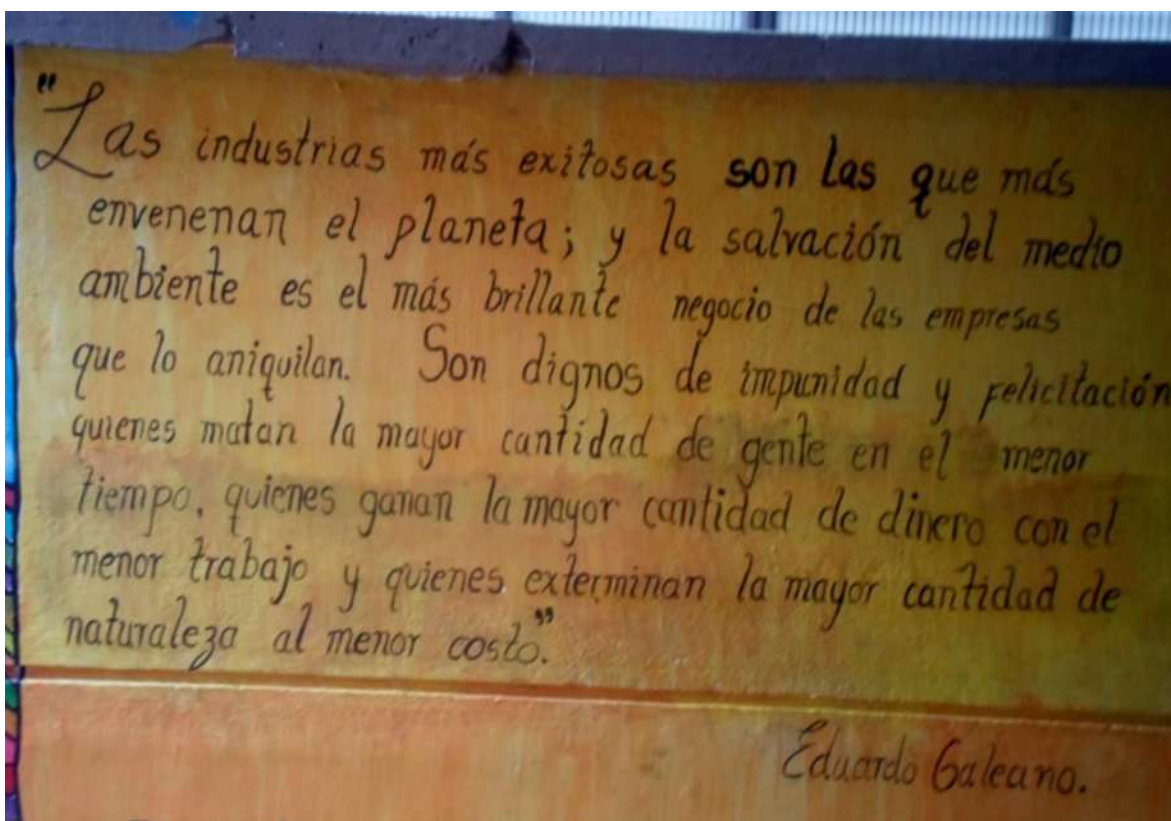 "Las industrias más exitosas son las que más
envenenan el planeta; y la salvación del medio
ambiente es el más brillante negocio de las empresas
que lo aniquilan. Son dignos de impunidad y felicitación
quienes matan la mayor cantidad de gente en el menor
tiempo, quienes ganan la mayor cantidad de dinero con el
menor trabajo y quienes exterminan la mayor cantidad de
naturaleza al menor costo."
Eduardo Galeano.